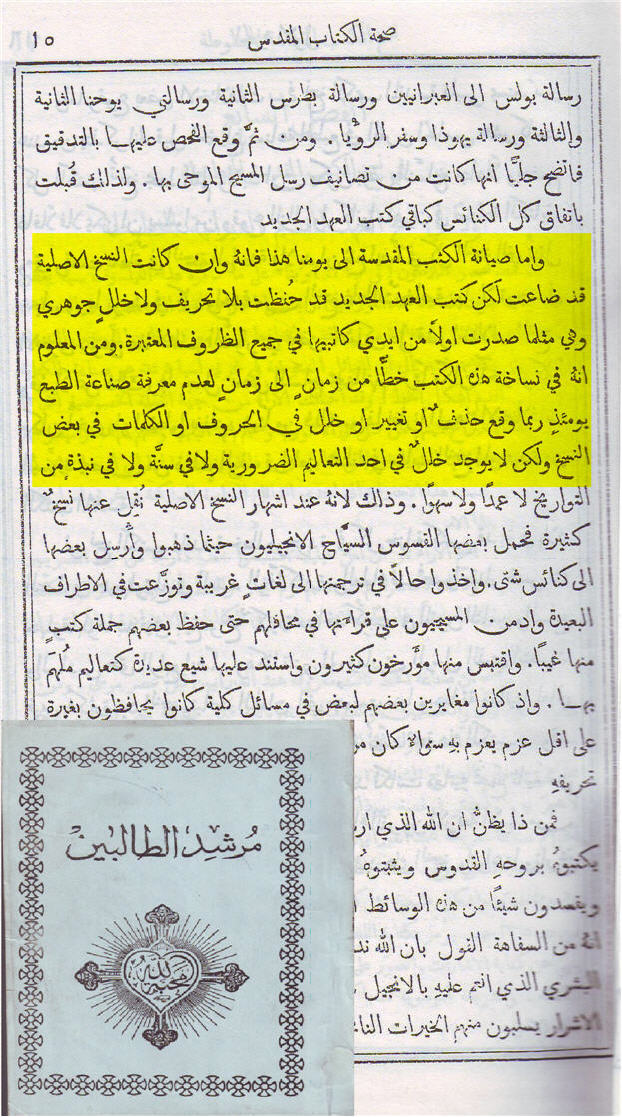 صحة الكتاب المقدس
١٥
رسالة بولس الى العبرانيين ورسالة بطرس الثانية ورسالتي يوحنا الثانية
والثالثة ورسالة يهوذا وسفر الرؤيا . ومن ثمَّ وقع الفحص عليها بالتدقيق
فاتضح جليًّا انها كانت من تصانيف رسل المسيح الموحى بها . ولذلك قُبلت
باتفاق كل الكنائس كباقي كتب العهد الجديد
واما صيانة الكتب المقدسة الى يومنا هذا فانهُ وان كانت النسخ الاصلية
قد ضاعت لكن كتب العهد الجديد قد حُفظت بلا تحريف ولا خلل جوهري
وهي مثلما صدرت اولاً من ايدي كاتبيها في جميع الظروف المعتبرة . ومن المعلوم
انهُ في نساخة هذه الكتب خطًّا من زمانٍ الى زمانٍ لعدم معرفة صناعة الطبع
يومئذٍ ربما وقع حذفٌ او تغيير او خلل في الحروف او الكلمات في بعض
النسخ ولكن لا يوجد خللٌ في احد التعاليم الضرورية ولا في سنَّة ولا في نبذة من
التواريخ لا عمدًا ولا سهوًا . وذلك لانهُ عند اشهار النسخ الاصلية نُقِل عنها نسخٌ
كثيرة فحمل بعضها القسوس السيَّاح الانجيليون حيثما ذهبوا وأُرسِل بعضها
الى كنائس شتى . واخذوا حالاً في ترجمتها الى لغاتٍ غريبة وتوزَّعت في الاطراف
البعيدة وادمن المسيحيون على قراءتها في محافلهم حتى حفظ بعضهم جملة كتبٍ
منها غيبًا . واقتبس منها مؤرخون كثيرون واستند عليها شيع عديدة كتعاليم مُلهَم
بها . واذ كانوا مغايرين بعضهم لبعض في مسائل كلية كانوا يحافظون بغيرة
على اقل عزم يعزم بهِ سواءٌ كان
تحريفهِ
فمن ذا يظنُّ ان الله الذي
يكتبوهُ بروحهِ القدوس ويثبتوهُ
ويفسدون شيئًا من هذه الوسائط
انهُ من السفاهة القول بان الله
البشري الذي انعم عليهِ بالانجيل
الاشرار يسلبون منهم الخيرات
مُرشِد الطالبين
محبة الله